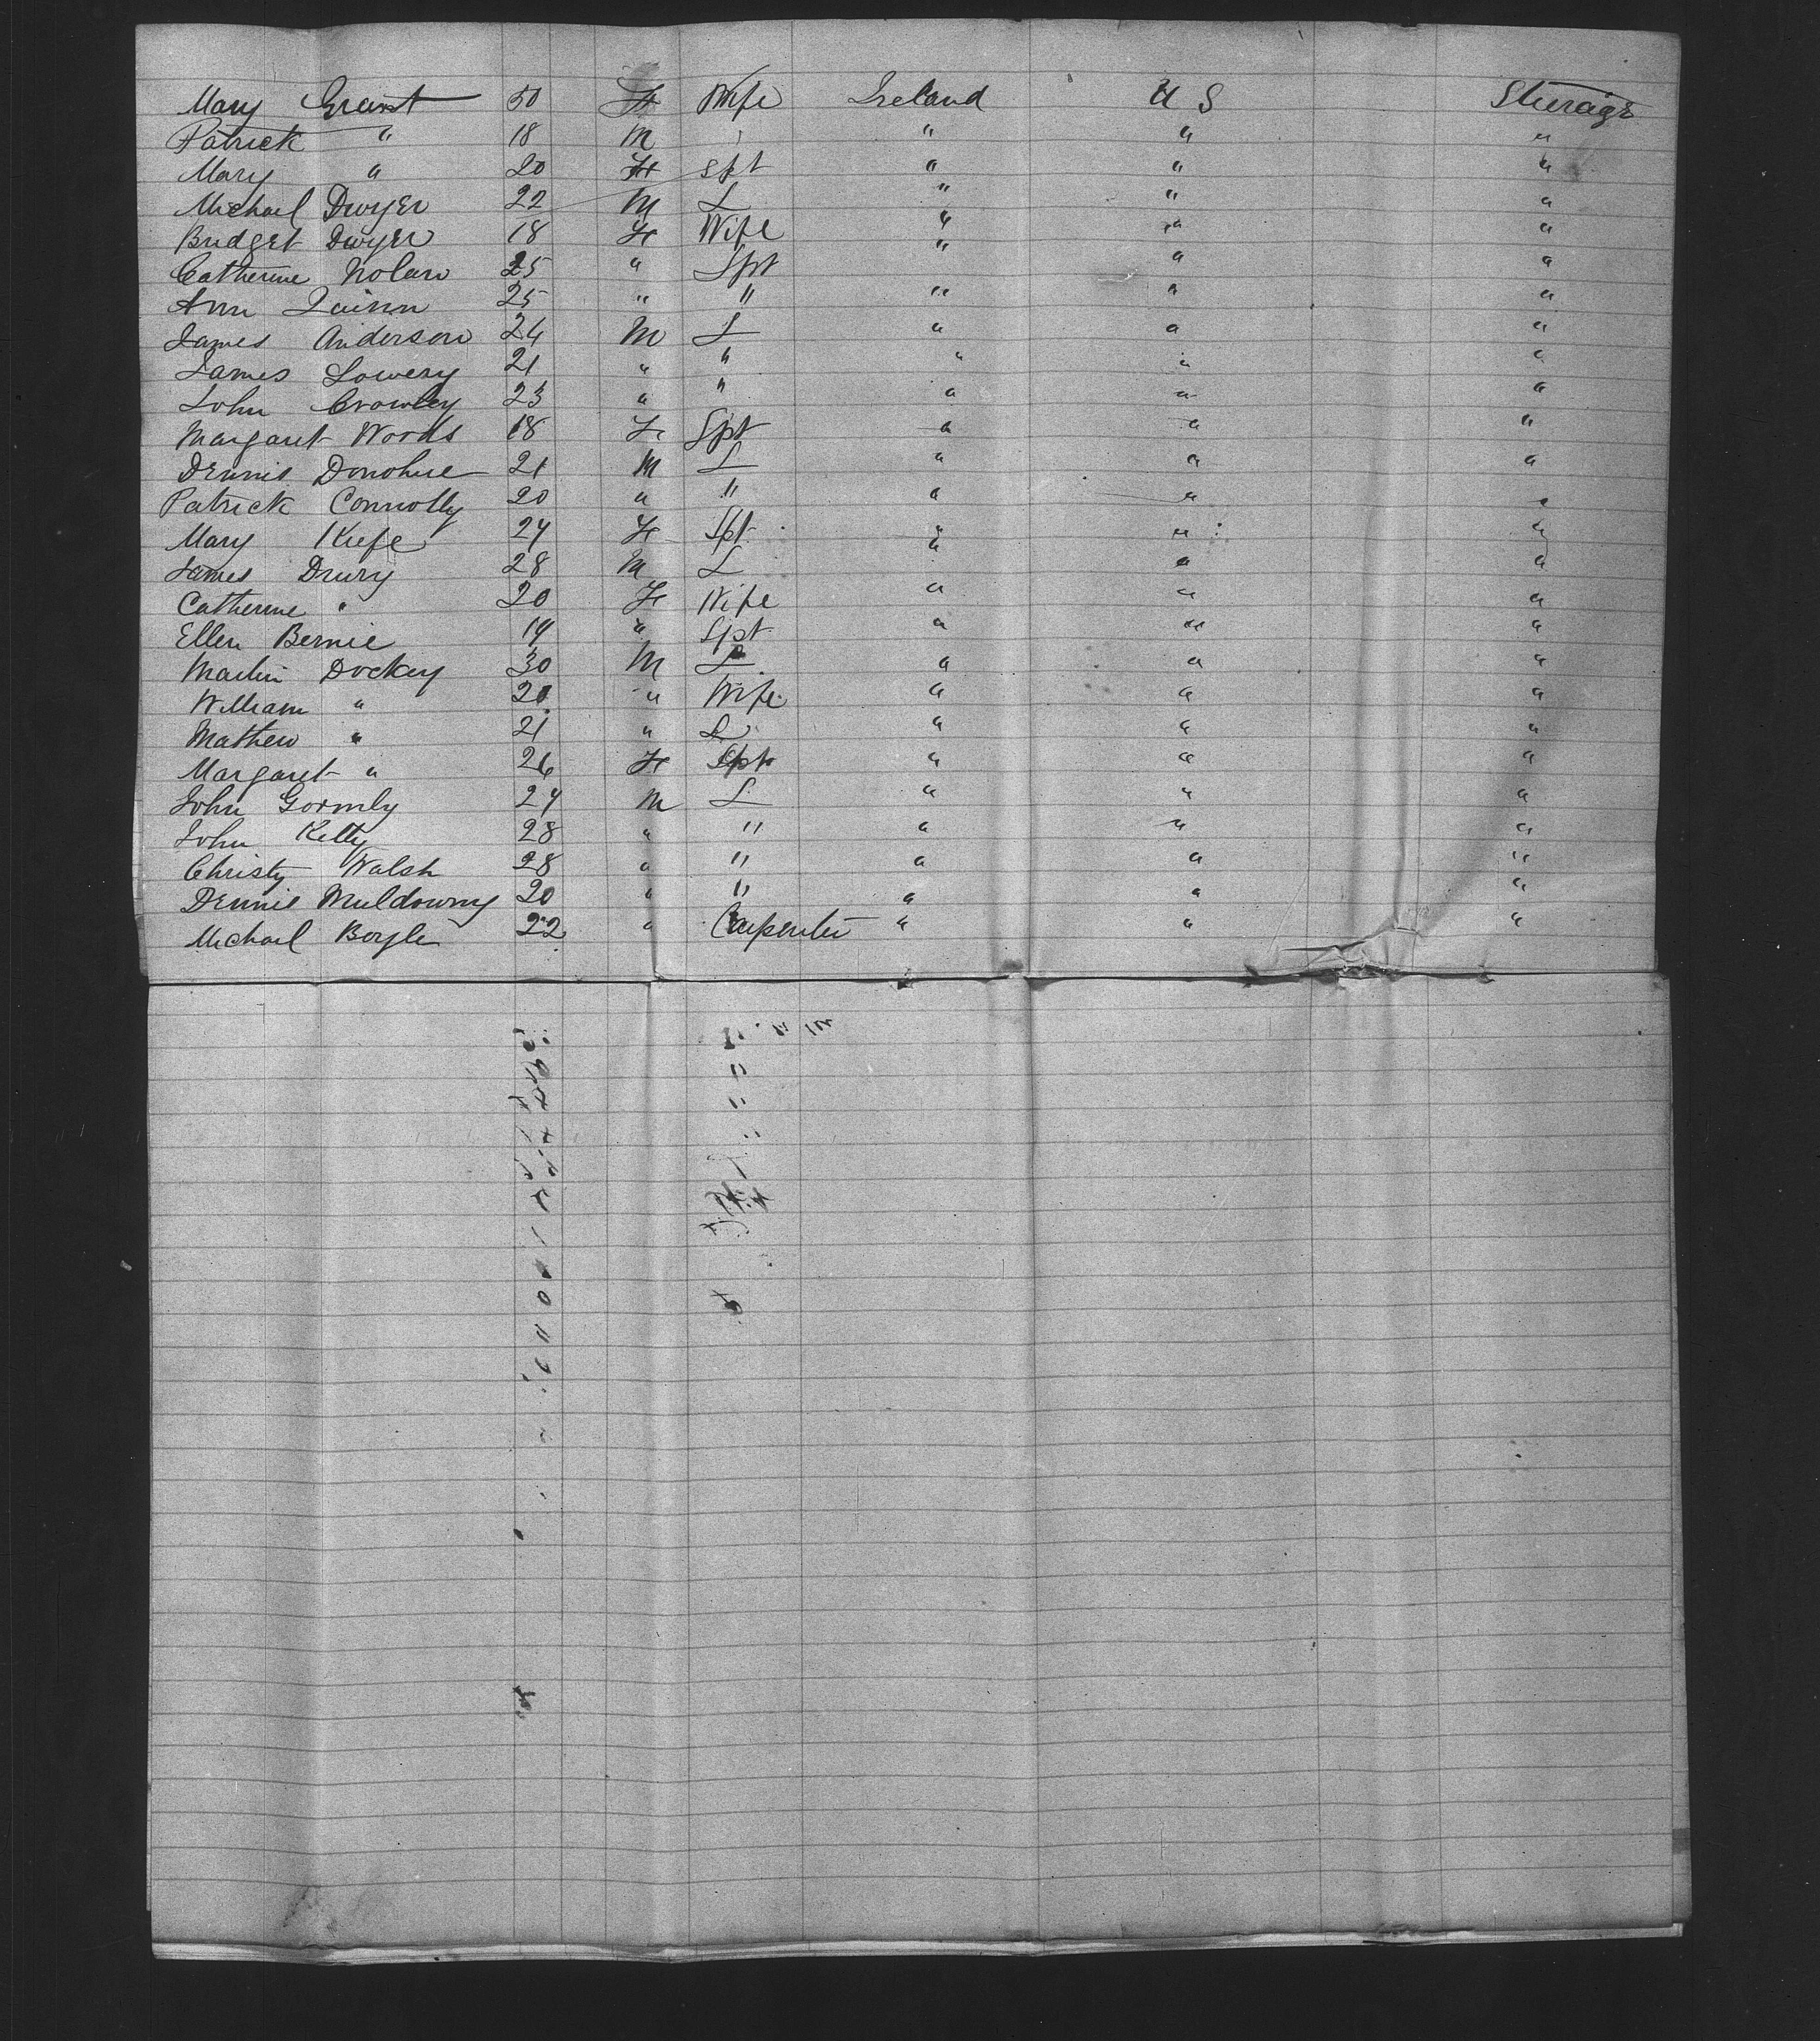 Mary Grant 50 F Wife Ireland U S Steerage
Patrick " 18 M " " "
Mary " 20 F Spt " " "
Michael Dwyer 22 M L " " "
Bridget Dwyer 18 F Wife " " "
Catherine Nolan 25 " Spt " " "
Ann Quinn 25 " " " " "
James Anderson 24 M L " " "
James Lowery 21 " " " " "
John Crowley 23 " " " " "
Margaret Woods 18 F Spt " " "
Dennis Donohue 21 M L " " "
Patrick Connolly 20 " " " " "
Mary Kiefe 24 F Spt " " "
James Drury 28 M L " " "
Catherine " 20 F Wife " " "
Ellen Bernie 19 " Spt " " "
Martin Dockey 30 M L " " "
William " 20 " Wife " " "
Mathew " 21 " L " " "
Margaret " 26 F Spt " " "
John Gormly 24 M L " " "
John Kelly 28 " " " " "
Christy Walsh 28 " " " " "
Dennis Muldowny 20 " " " " "
Michael Boyle 22 " Carpenter " " "